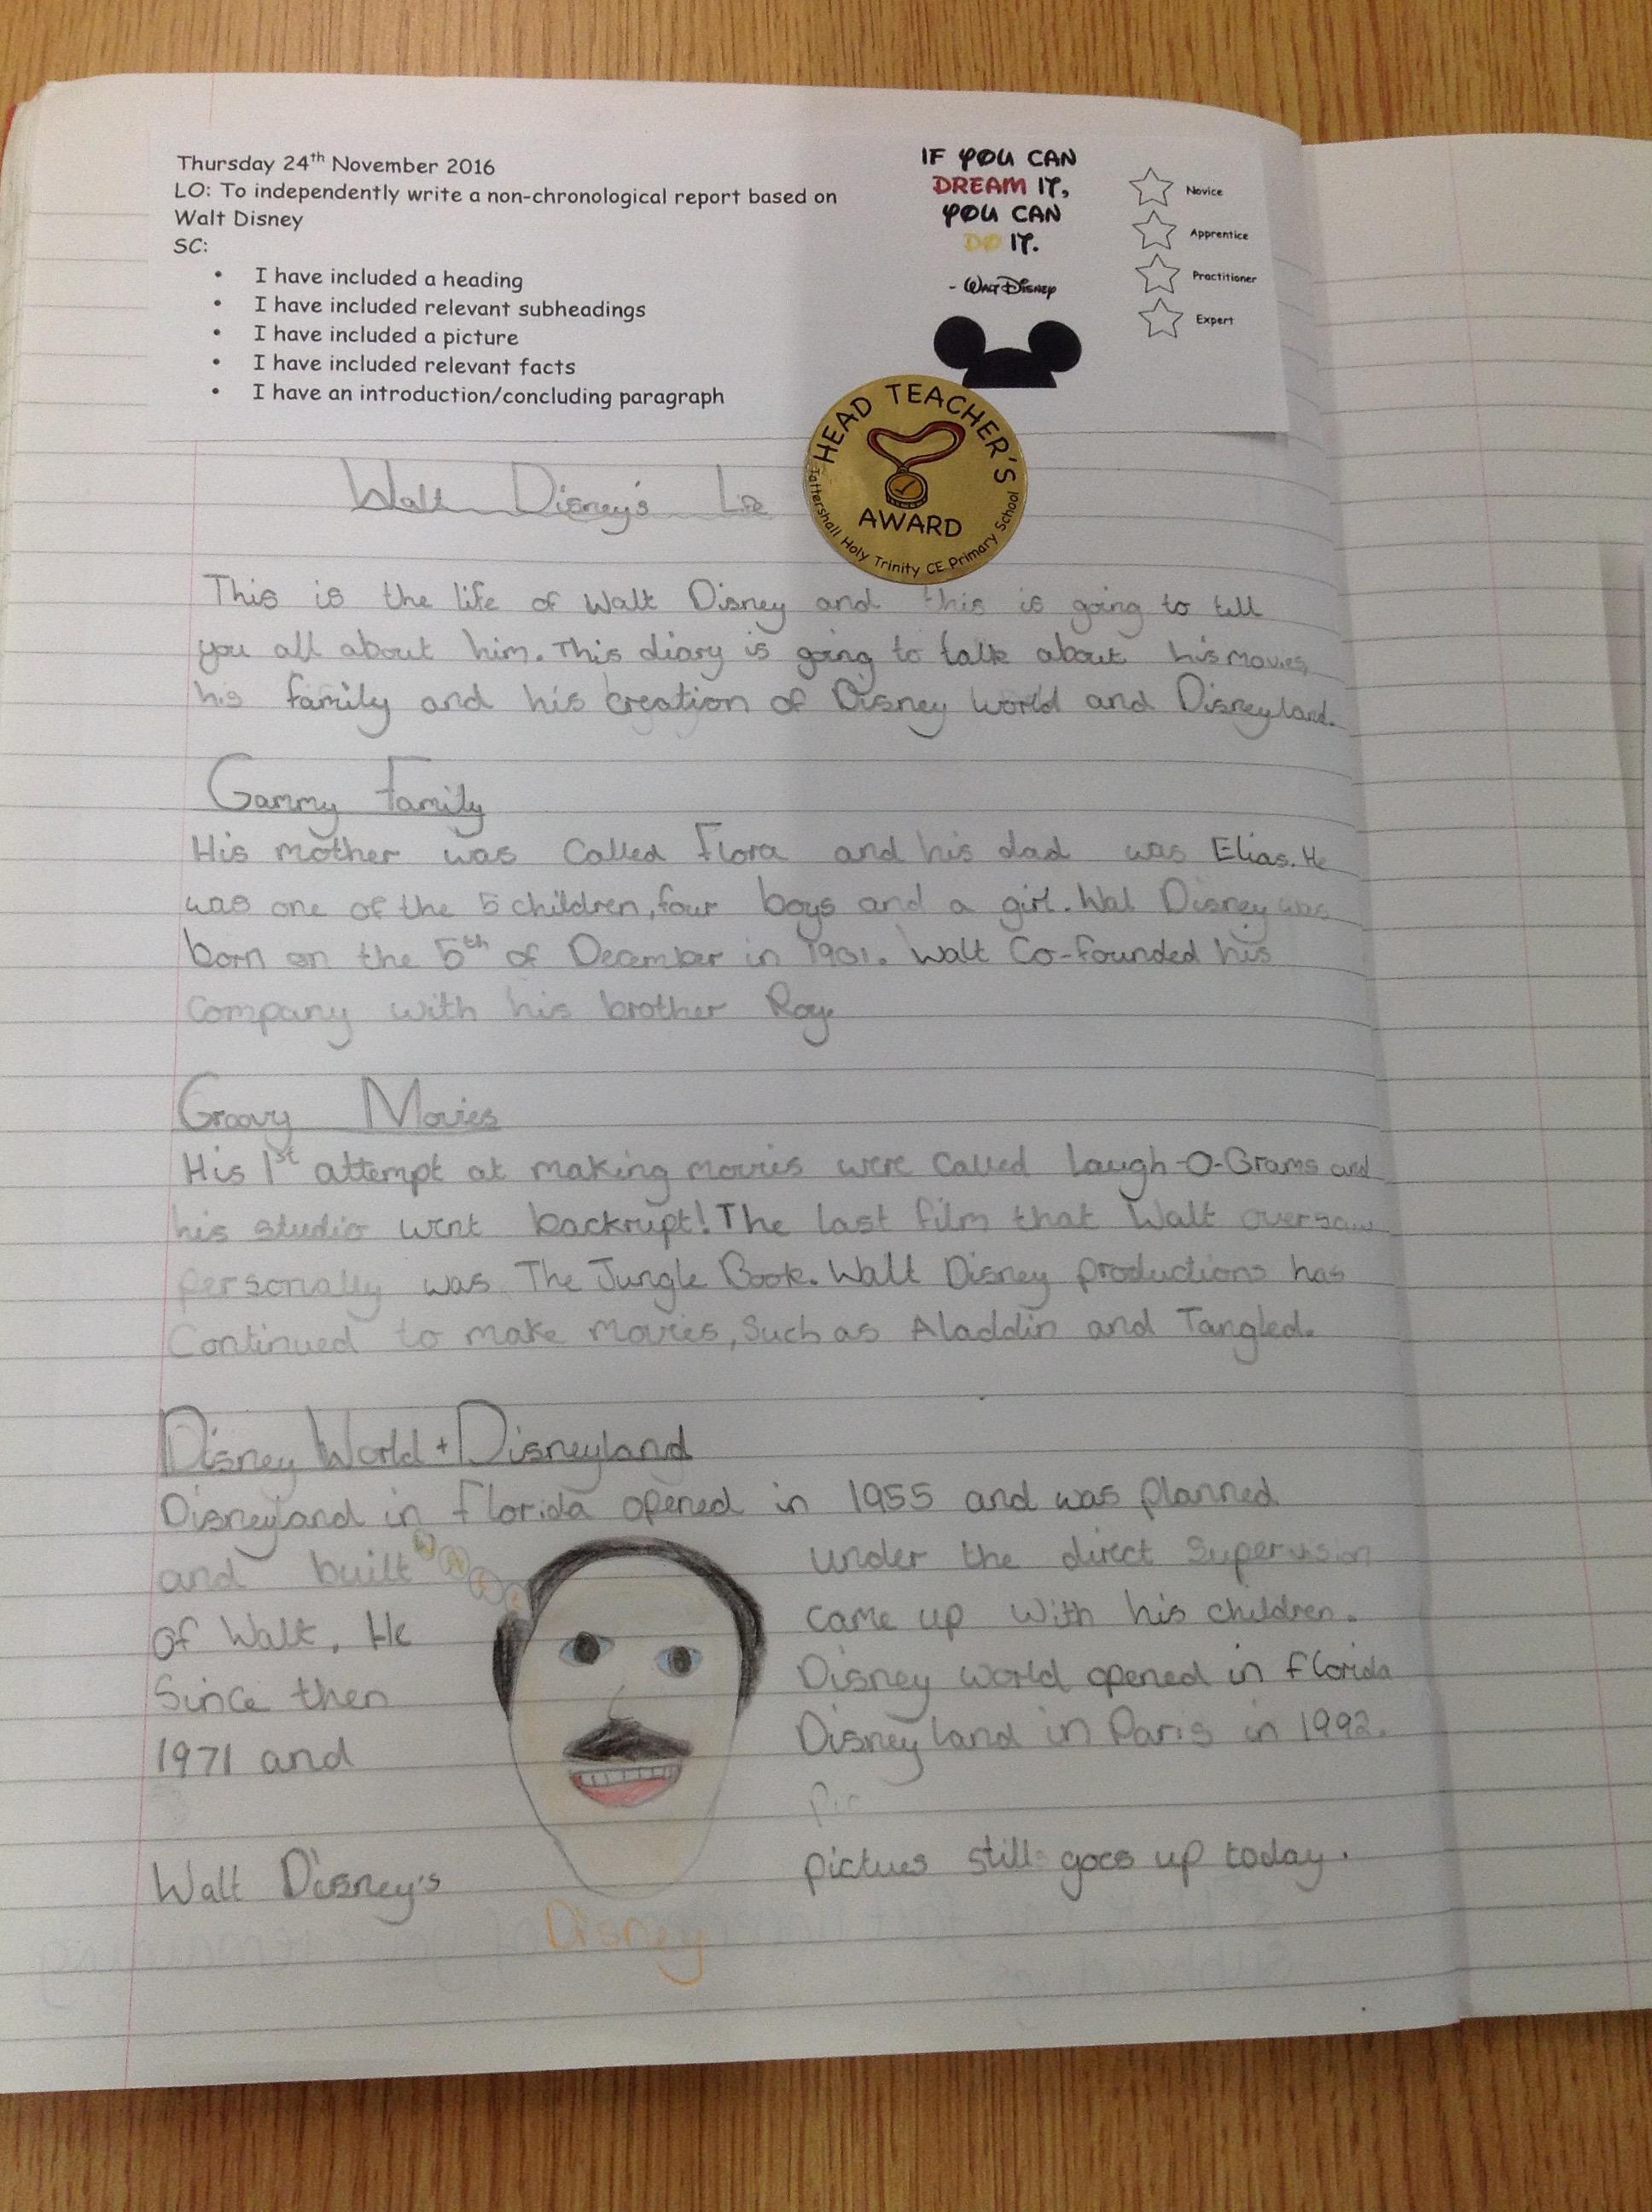 Thursday 24th November 2016
LO: To independently write a non-chronological report based on
Walt Disney
SC:
• I have included a heading
• I have included relevant subheadings
• I have included a picture
• I have included relevant facts
• I have an introduction/concluding paragraph
IF YOU CAN
DREAM IT,
YOU CAN
DO IT.
- Walt Disney
Novice
Apprentice
Practitioner
Expert
HEAD TEACHER'S
AWARD
Tattershall Holy Trinity CE Primary School
Walt Disney's
This is the life of Walt Disney and this is going to tell
you all about him. This diary is going to talk about his movies,
his family and his creation of Disney world and Disneyland.
Gammy Family
His mother was Called Flora and his dad was Elias. He
was one of the 5 children, four boys and a girl. Wal Disney was
born on the 5th of December in 1901. Walt Co-founded his
Company with his brother Roy.
Groovy Movies
His 1st attempt at making movies were called Laugh-O-Grams and
his studio went backrupt! The last film that Walt oversaw
personally was The Jungle Book. Walt Disney productions has
Continued to make movies, Such as Aladdin and Tangled.
Disney World + Disneyland
Disneyland in Florida opened in 1955 and was planned
and built under the direct Supervision
of Walt. He came up with his children.
Since then Disney world opened in florida
1971 and Disneyland in Paris in 1992.
Pic
Walt Disney's pictues still goes up today.
Disney